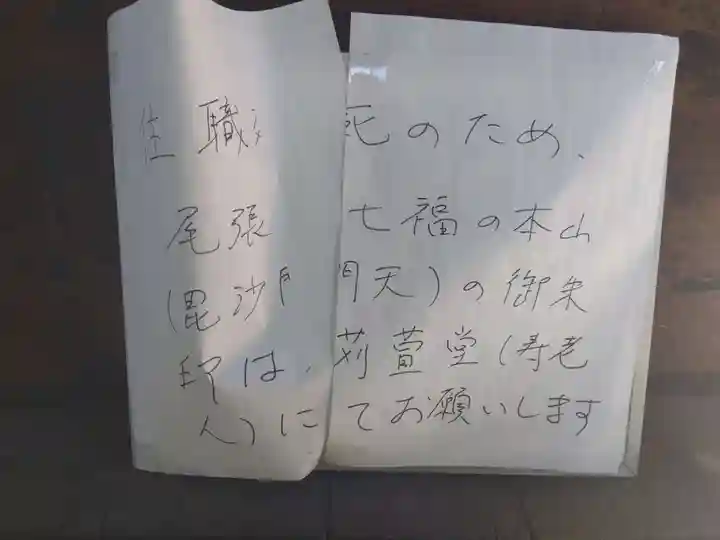 住職 死のため、
尾張 七福の本山
(毘沙門天)の御朱
印は、苅萱堂(寿老
人)にてお願いします